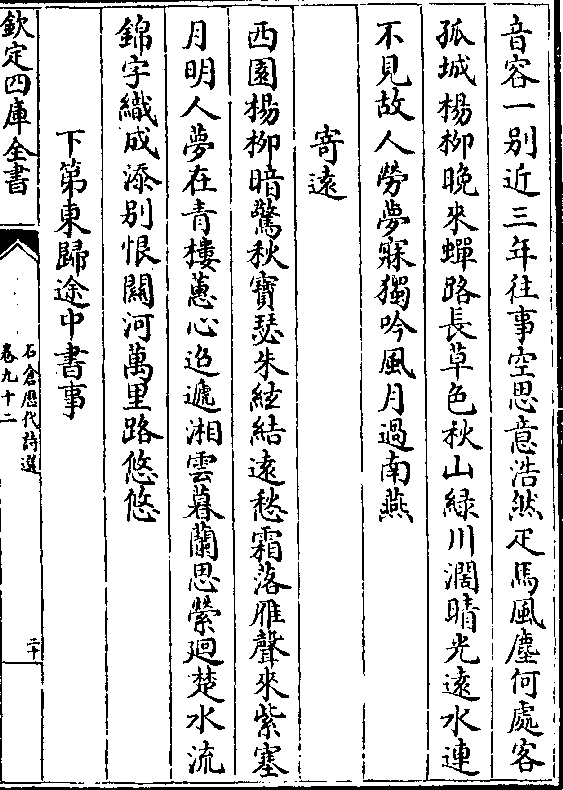 音容一别近三年往事空思意浩然疋馬風塵何處客
孤城楊柳晚來蟬路長草色秋山緑川濶晴光遠水連
不見故人勞夢寐獨吟風月過南燕
寄遠
西園楊栁暗驚秋寳瑟朱絃結遠愁霜落雁聲來紫塞
月明人夢在青樓蕙心迢遞湘雲暮蘭思縈廻楚水流
錦字織成添别恨關河萬里路悠悠
下第東歸途中書事
欽定四庫全書
石倉歴代詩選
卷九十二
二十